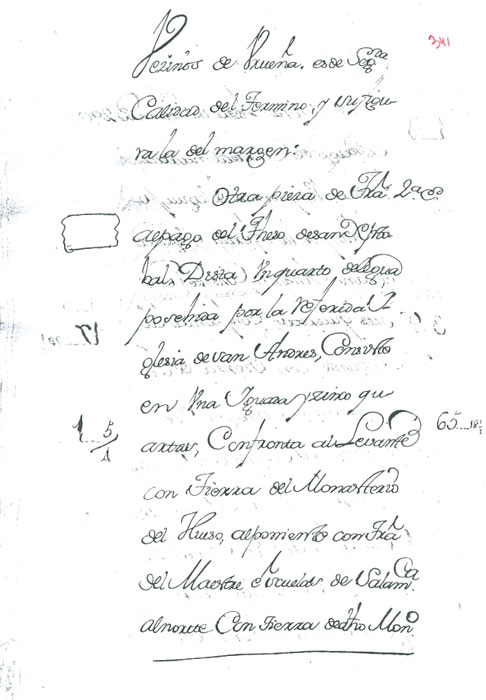 341
Vezinos de Prueña. es de Segda
Calidad del Termino, y su figu
ra la del margen:
Otra pieza de Tra. 2a. Cd.
al pago del Theso de san Christo
bal, Dista Un quarto de legua
posehida por la referida I
glesia de san Andres, Consiste
en Una Iguada y zinco qu
artas, Confronta al Levante
1 5/4
65
con Tierra del Monasterio
del Hueso, al poniente con Tra.
del Maestre escuelas de Salamca.
al norte Con Tierra de dho Mono.